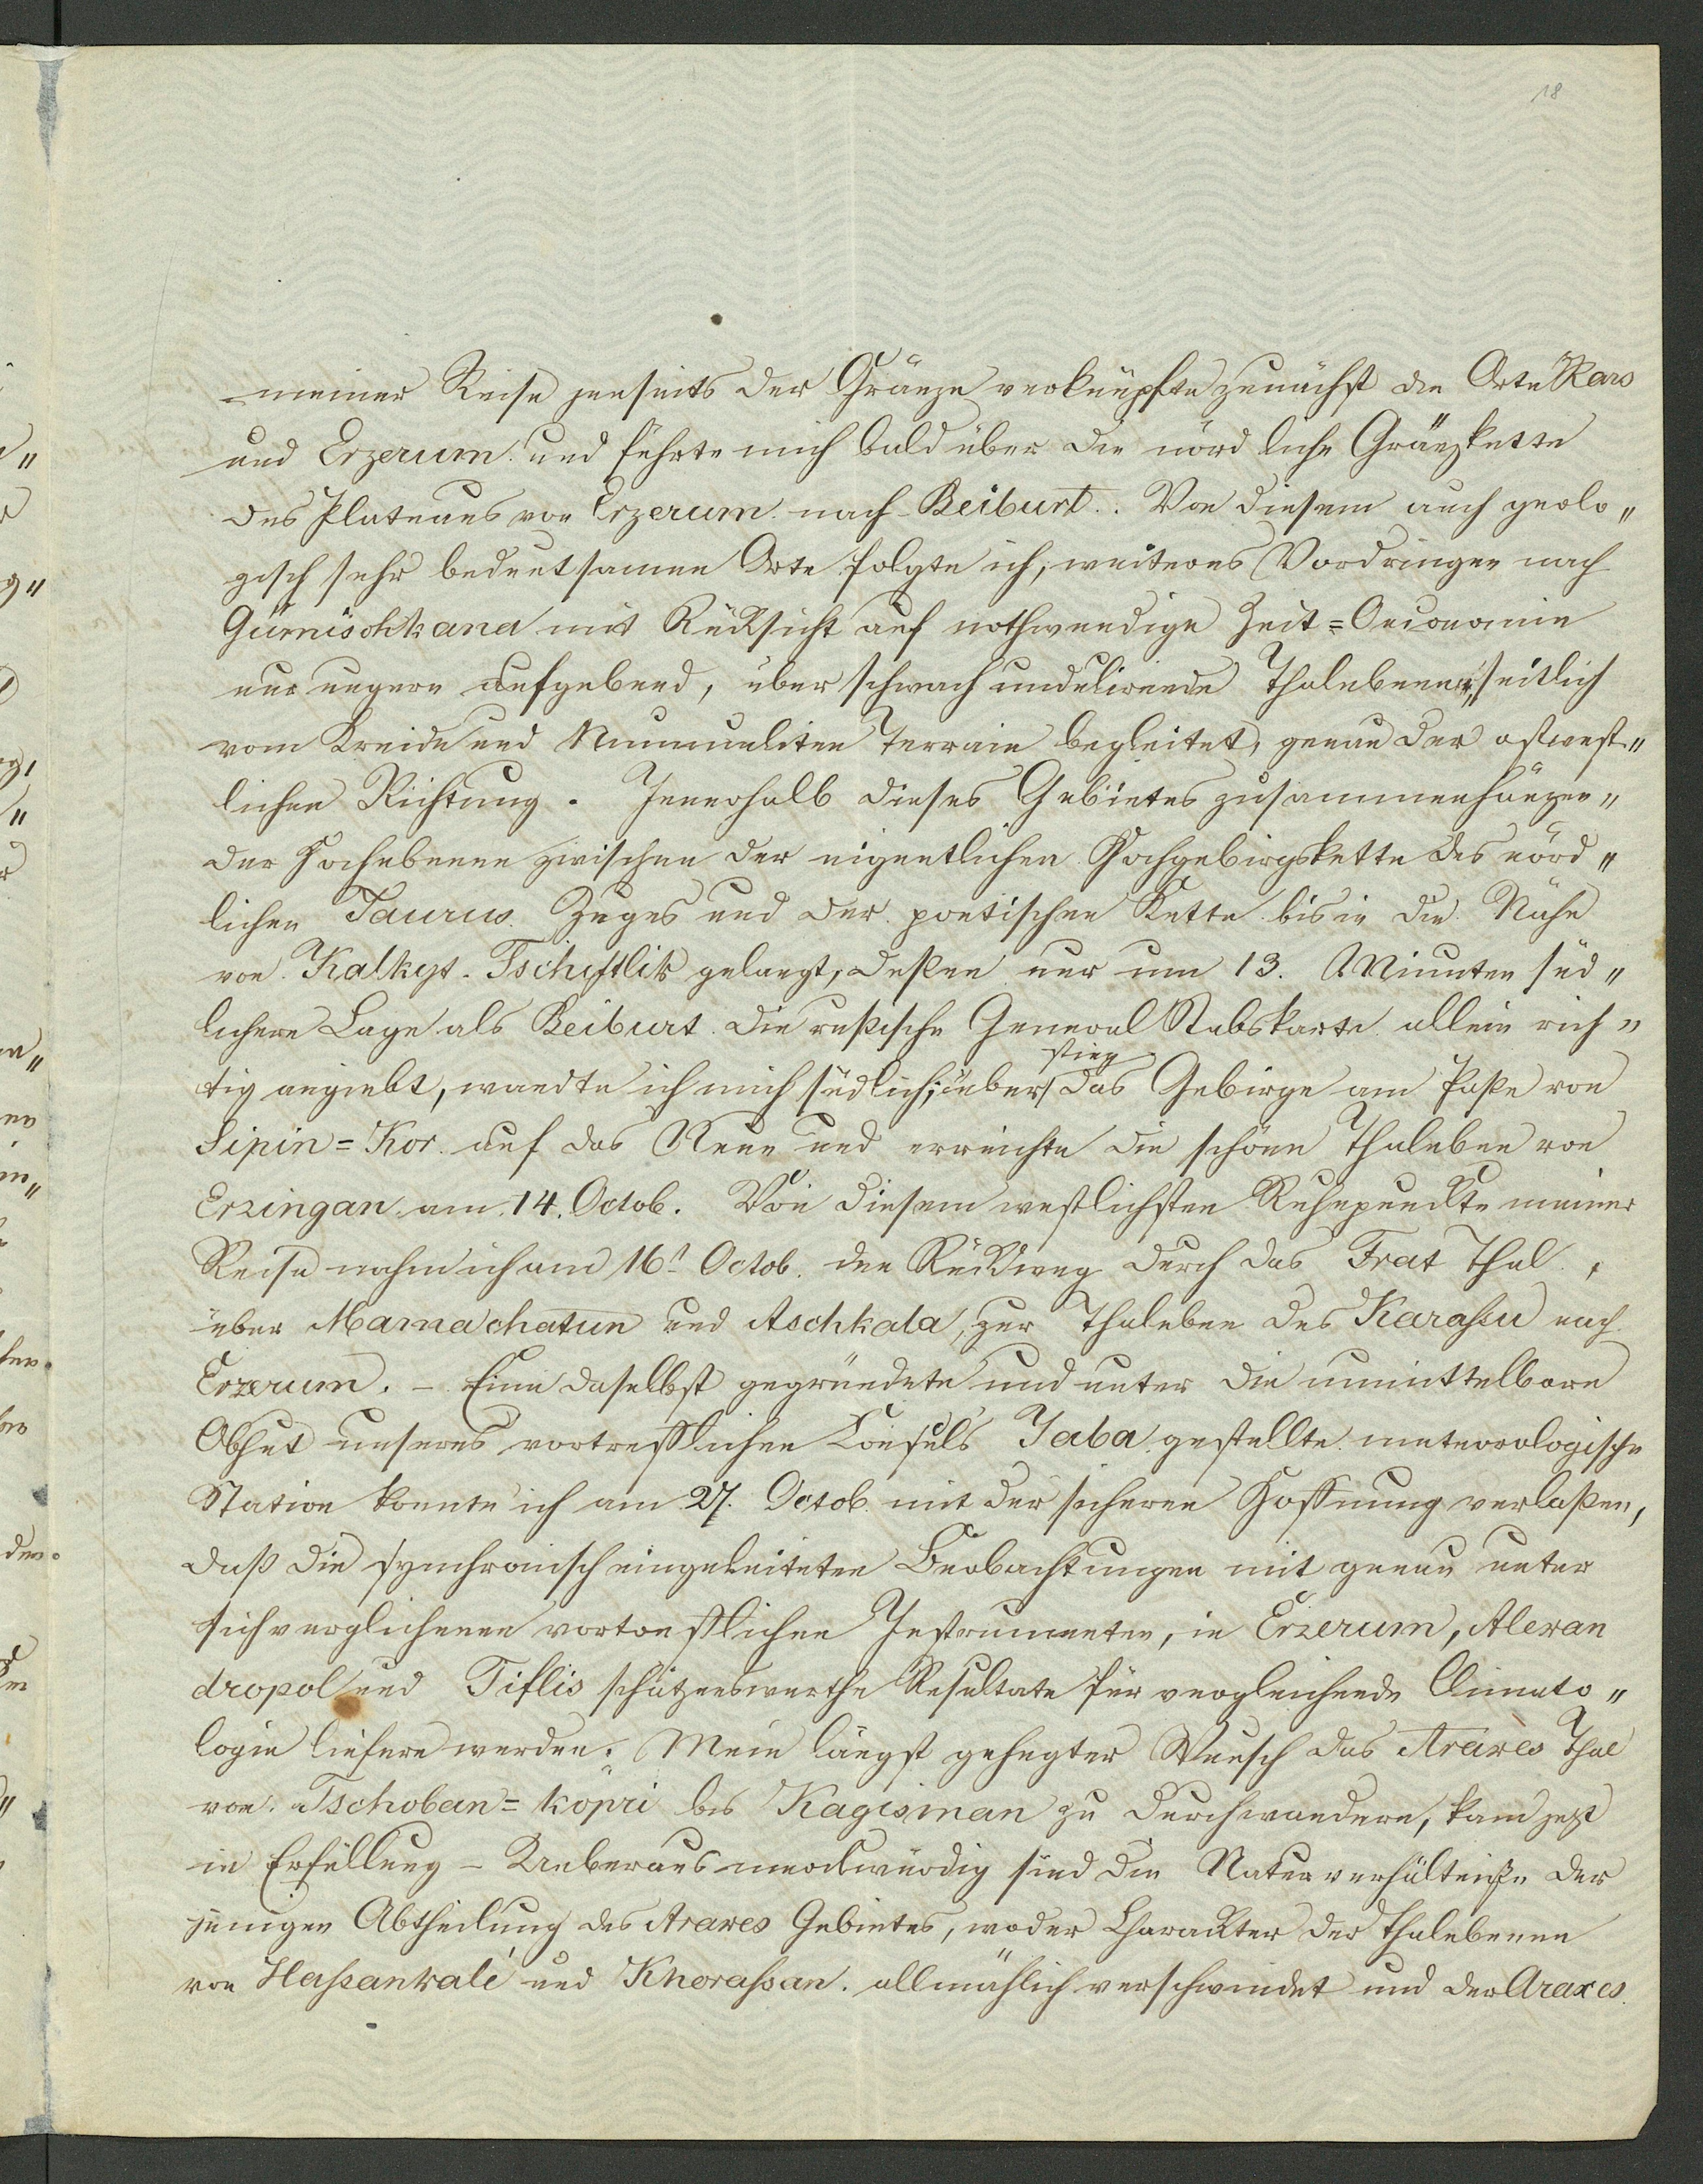 18
meiner Reise jenseits der Gränze verknüpfte zunächst die Orte Kars
und Erzerum und führte mich bald über die nördliche Gränzkette
des Plateaus von Erzerum nach Beiburt. Von diesem auch geolo„
gisch sehr bedeutsamen Orte folgte ich, weiteres Vordringen nach
Gümischkana mit Rücksicht auf nothwendige Zeit=Oeconomie
nur ungern aufgebend, über schwach undulirende Thalebenen, seitlich
vom Kreide und Nummuliten Terrain begleitet, genau der ostwest„
lichen Richtung. Innerhalb dieses Gebietes zusammenhängen„
der Hochebenen zwischen der eigentlichen Hochgebirgskette des nörd„
lichen Taurus Zuges und der pontischen Kette bis in die Nähe
von Kalkyt-Tschiftlik gelangt, deßen nur um 13. Minuten süd„
lichere Lage als Beiburt die rußische General Stabskarte allein rich„
stieg
tig angiebt, wandte ich mich südlich; über das Gebirge am Paße von
Sipin=Kor auf das Neue und erreichte die schöne Thalebene von
Erzingan am 14. Octob. Von diesem westlichsten Ruhepunkte meiner
Reise nahm ich am 16t Octob. den Rückweg durch das Frat Thal,
über Mamachatun und Aschkala, zur Thalebene des Karaßu nach
Erzerum. – Eine daselbst gegründete und unter die unmittelbare
Obhut unseres vortrefflichen Consuls Jaba gestellte meteorologische
Station konnte ich am 27. Octob. mit der sicheren Hoffnung verlaßen,
daß die synchronisch eingeleiteten Beobachtungen mit genau unter
sich verglichenen vortrefflichen Instrumenten, in Erzerum, Alexan
dropol und Tiflis schätzenswerthe Resultate für vergleichende Climato„
logie liefern werden. Mein längst gehegter Wunsch das Araxes Thal
von Tschoban=köpri bis Kagisman zu durchwandern, kam jezt
in Erfüllung – Ueberaus merckwürdig sind die Naturverhältniße der
jenigen Abtheilung des Araxes Gebietes, wo der Charackter der Thalebenen
von Haßankalé und Khoraßan allmählich verschwindet und der Araxes